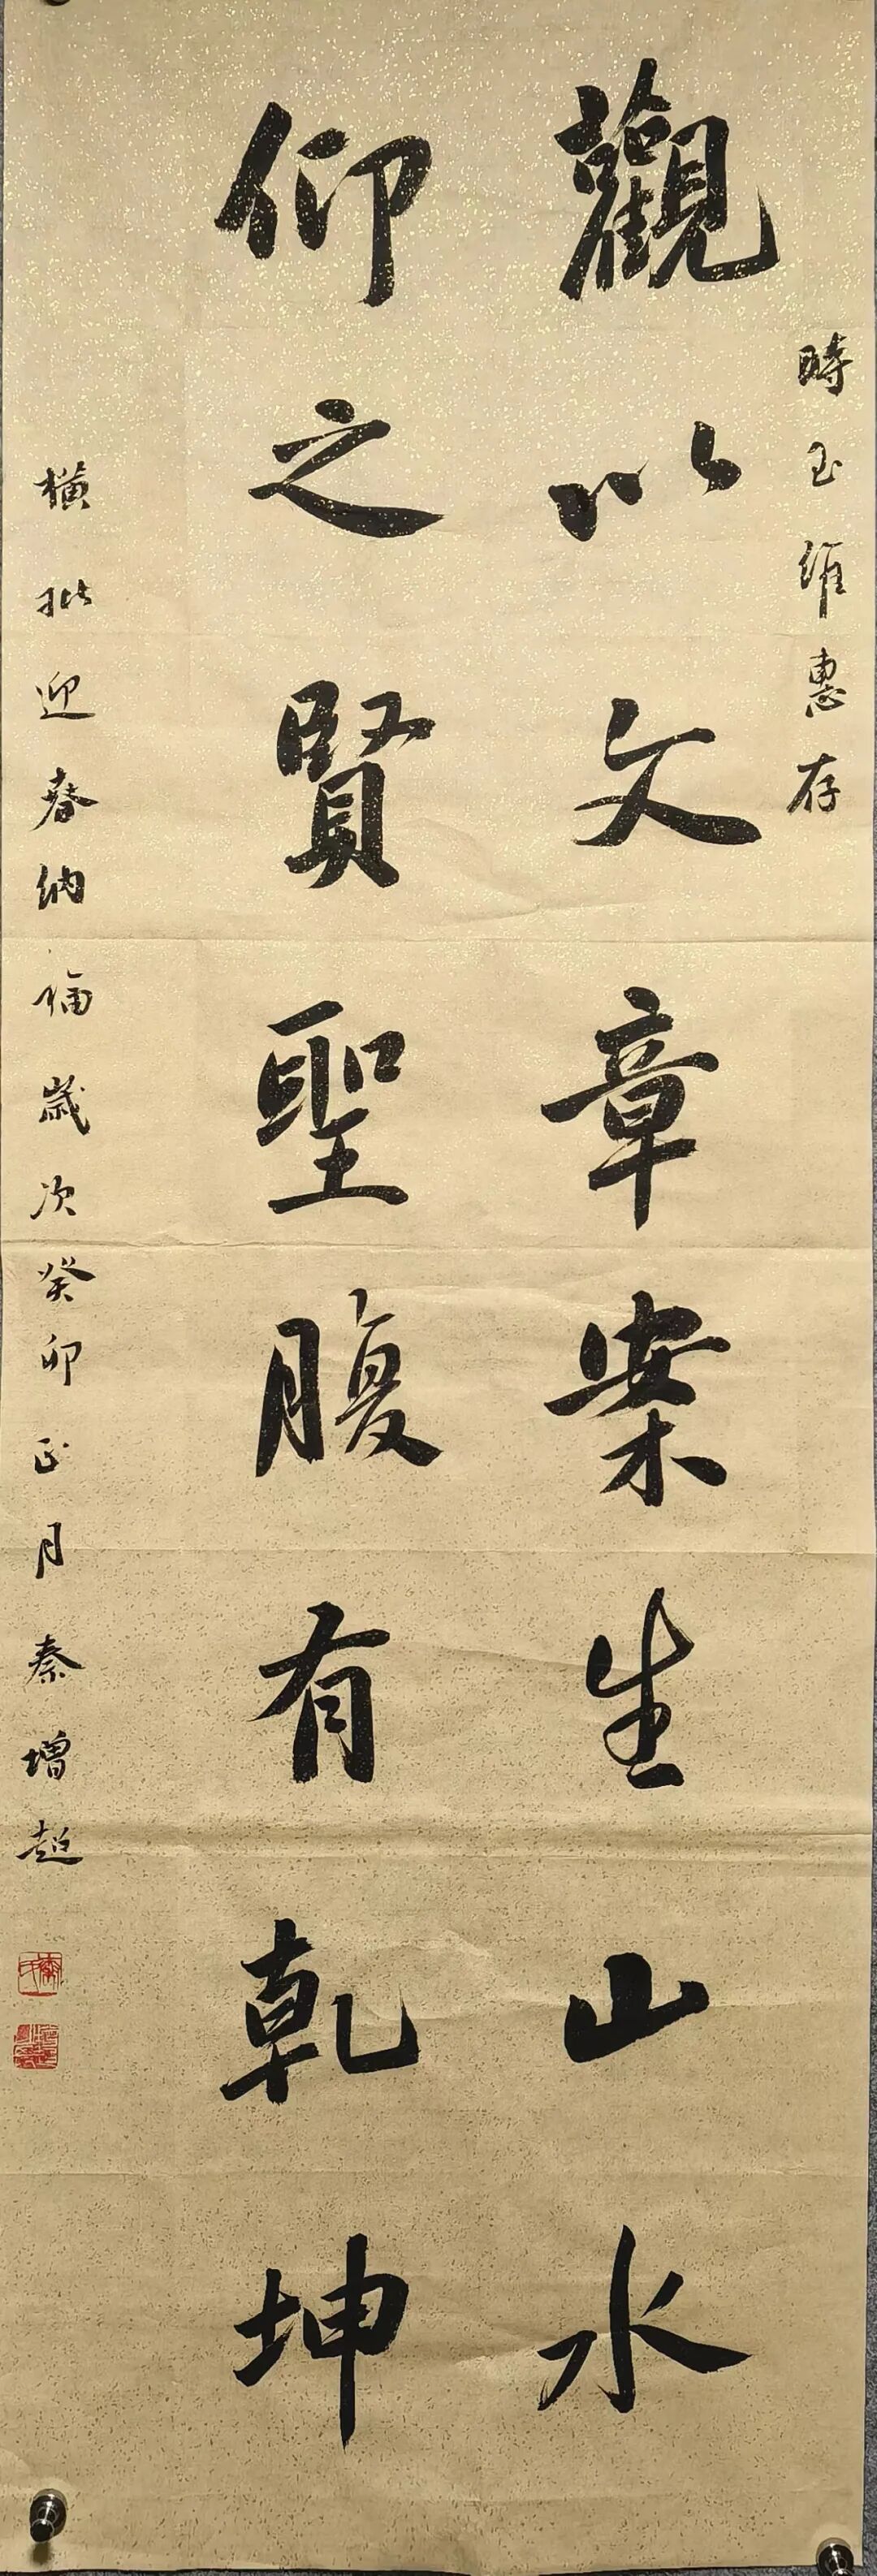 時玉維惠存
觀以文章案生山水
仰之賢聖腹有乾坤
橫批迎春納福歲次癸卯正月秦增超